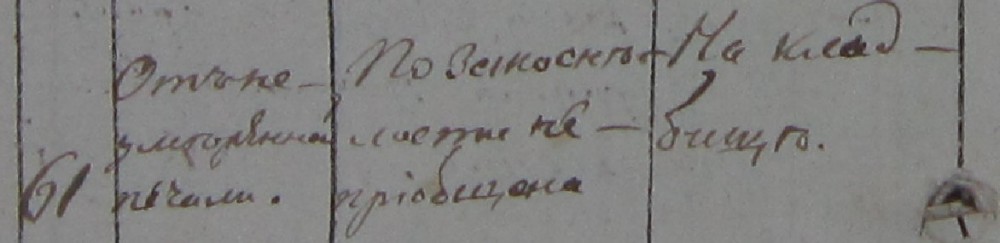 61
Отъ не-
умѣренной
печали.
По закоснѣ-
лости не-
пріобщена
На клад-
бищѣ.